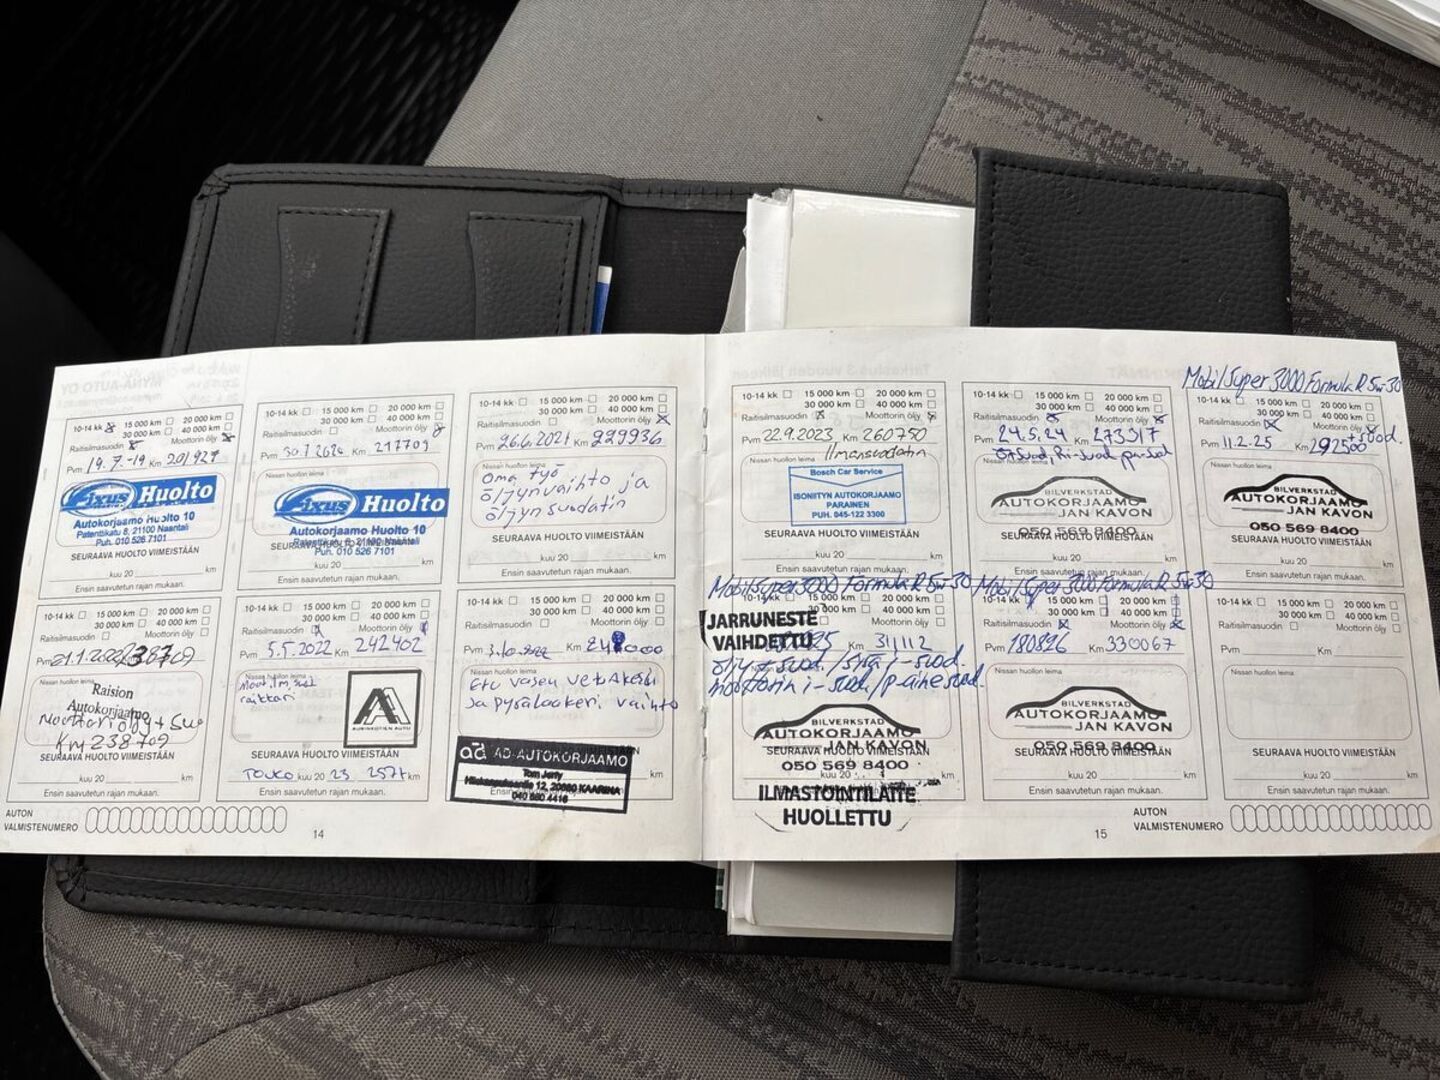 Mobil Super 3000 Formula R 5w-30
10-14 kk 15 000 km 20 000 km
30 000 km 40 000 km
Raitisilmasuodin Moottorin öljy
Pvm 19.7.-19 Km 201929
Fixus Huolto
Autokorjaamo Huolto 10
Patenttikatu 8, 21100 Naantali
Puh. 010 526 7101
SEURAAVA HUOLTO VIIMEISTÄÄN
kuu 20 km
Ensin saavutetun rajan mukaan.
10-14 kk 15 000 km 20 000 km
30 000 km 40 000 km
Raitisilmasuodin Moottorin öljy
Pvm Km 217709
Fixus Huolto
Autokorjaamo Huolto 10
Patenttikatu 8, 21100 Naantali
Puh. 010 526 7101
SEURAAVA HUOLTO VIIMEISTÄÄN
kuu 20 km
Ensin saavutetun rajan mukaan.
10-14 kk 15 000 km 20 000 km
30 000 km 40 000 km
Raitisilmasuodin Moottorin öljy
Pvm 26.6.2021 Km 229936
Nissan huollon leima
Oma työ
öljynvaihto ja
öljynsuodatin
SEURAAVA HUOLTO VIIMEISTÄÄN
kuu 20 km
Ensin saavutetun rajan mukaan.
10-14 kk 15 000 km 20 000 km
30 000 km 40 000 km
Raitisilmasuodin Moottorin öljy
Pvm 22.9.2023 Km 260750
Ilmansuodatin
Nissan huollon leima
Bosch Car Service
ISONIITYN AUTOKORJAAMO
PARAINEN
PUH. 045-122 3300
SEURAAVA HUOLTO VIIMEISTÄÄN
kuu 20 km
Ensin saavutetun rajan mukaan.
10-14 kk 15 000 km 20 000 km
30 000 km 40 000 km
Raitisilmasuodin Moottorin öljy
Pvm 24.5.24 Km 273317
Nissan huollon leima
BILVERKSTAD
AUTOKORJAAMO
JAN KAVON
050 569 8400
SEURAAVA HUOLTO VIIMEISTÄÄN
kuu 20 km
Ensin saavutetun rajan mukaan.
10-14 kk 15 000 km 20 000 km
30 000 km 40 000 km
Raitisilmasuodin Moottorin öljy
Pvm 11.2-25 Km 292500 + suod.
Nissan huollon leima
BILVERKSTAD
AUTOKORJAAMO
JAN KAVON
050 569 8400
SEURAAVA HUOLTO VIIMEISTÄÄN
kuu 20 km
Ensin saavutetun rajan mukaan.
10-14 kk 15 000 km 20 000 km
30 000 km 40 000 km
Raitisilmasuodin Moottorin öljy
Pvm 21.1.2022
Nissan huollon leima
Raision
Autokorjaamo
Moottoriöljy + suo
Km 238709
SEURAAVA HUOLTO VIIMEISTÄÄN
kuu 20 km
Ensin saavutetun rajan mukaan.
10-14 kk 15 000 km 20 000 km
30 000 km 40 000 km
Raitisilmasuodin Moottorin öljy
Pvm 5.5.2022 Km 242402
Nissan huollon leima
AURINKOTIEN AUTO
SEURAAVA HUOLTO VIIMEISTÄÄN
Touko kuu 20 23 257t km
Ensin saavutetun rajan mukaan.
10-14 kk 15 000 km 20 000 km
30 000 km 40 000 km
Raitisilmasuodin Moottorin öljy
Pvm 3.10.2022 Km
Nissan huollon leima
Etu vasen vetoakseli
ja pyörälaakeri vaihto
ad AD-AUTOKORJAAMO
Tom Jerfy
20660 KAARINA
040 560 4416
km
Ensin saavutetun rajan mukaan.
Mobil Super 3000 Formula R 5w-30
10-14 kk 15 000 km 20 000 km
30 000 km 40 000 km
JARRUNESTE
VAIHDETTU
Moottorin öljy
Km 311112
öljy + suod. / sisä i-suod.
moottorin i-suod / p-aine suod.
BILVERKSTAD
AUTOKORJAAMO
JAN KAVON
050 569 8400
SEURAAVA HUOLTO VIIMEISTÄÄN
ILMASTOINTILAITE
HUOLLETTU
Mobil Super 3000 Formula R 5w-30
10-14 kk 15 000 km 20 000 km
30 000 km 40 000 km
Raitisilmasuodin Moottorin öljy
Pvm 180826 Km 330067
Nissan huollon leima
BILVERKSTAD
AUTOKORJAAMO
JAN KAVON
050 569 8400
SEURAAVA HUOLTO VIIMEISTÄÄN
kuu 20 km
Ensin saavutetun rajan mukaan.
10-14 kk 15 000 km 20 000 km
30 000 km 40 000 km
Raitisilmasuodin Moottorin öljy
Pvm Km
Nissan huollon leima
SEURAAVA HUOLTO VIIMEISTÄÄN
kuu 20 km
Ensin saavutetun rajan mukaan.
AUTON
VALMISTENUMERO
14
15
AUTON
VALMISTENUMERO